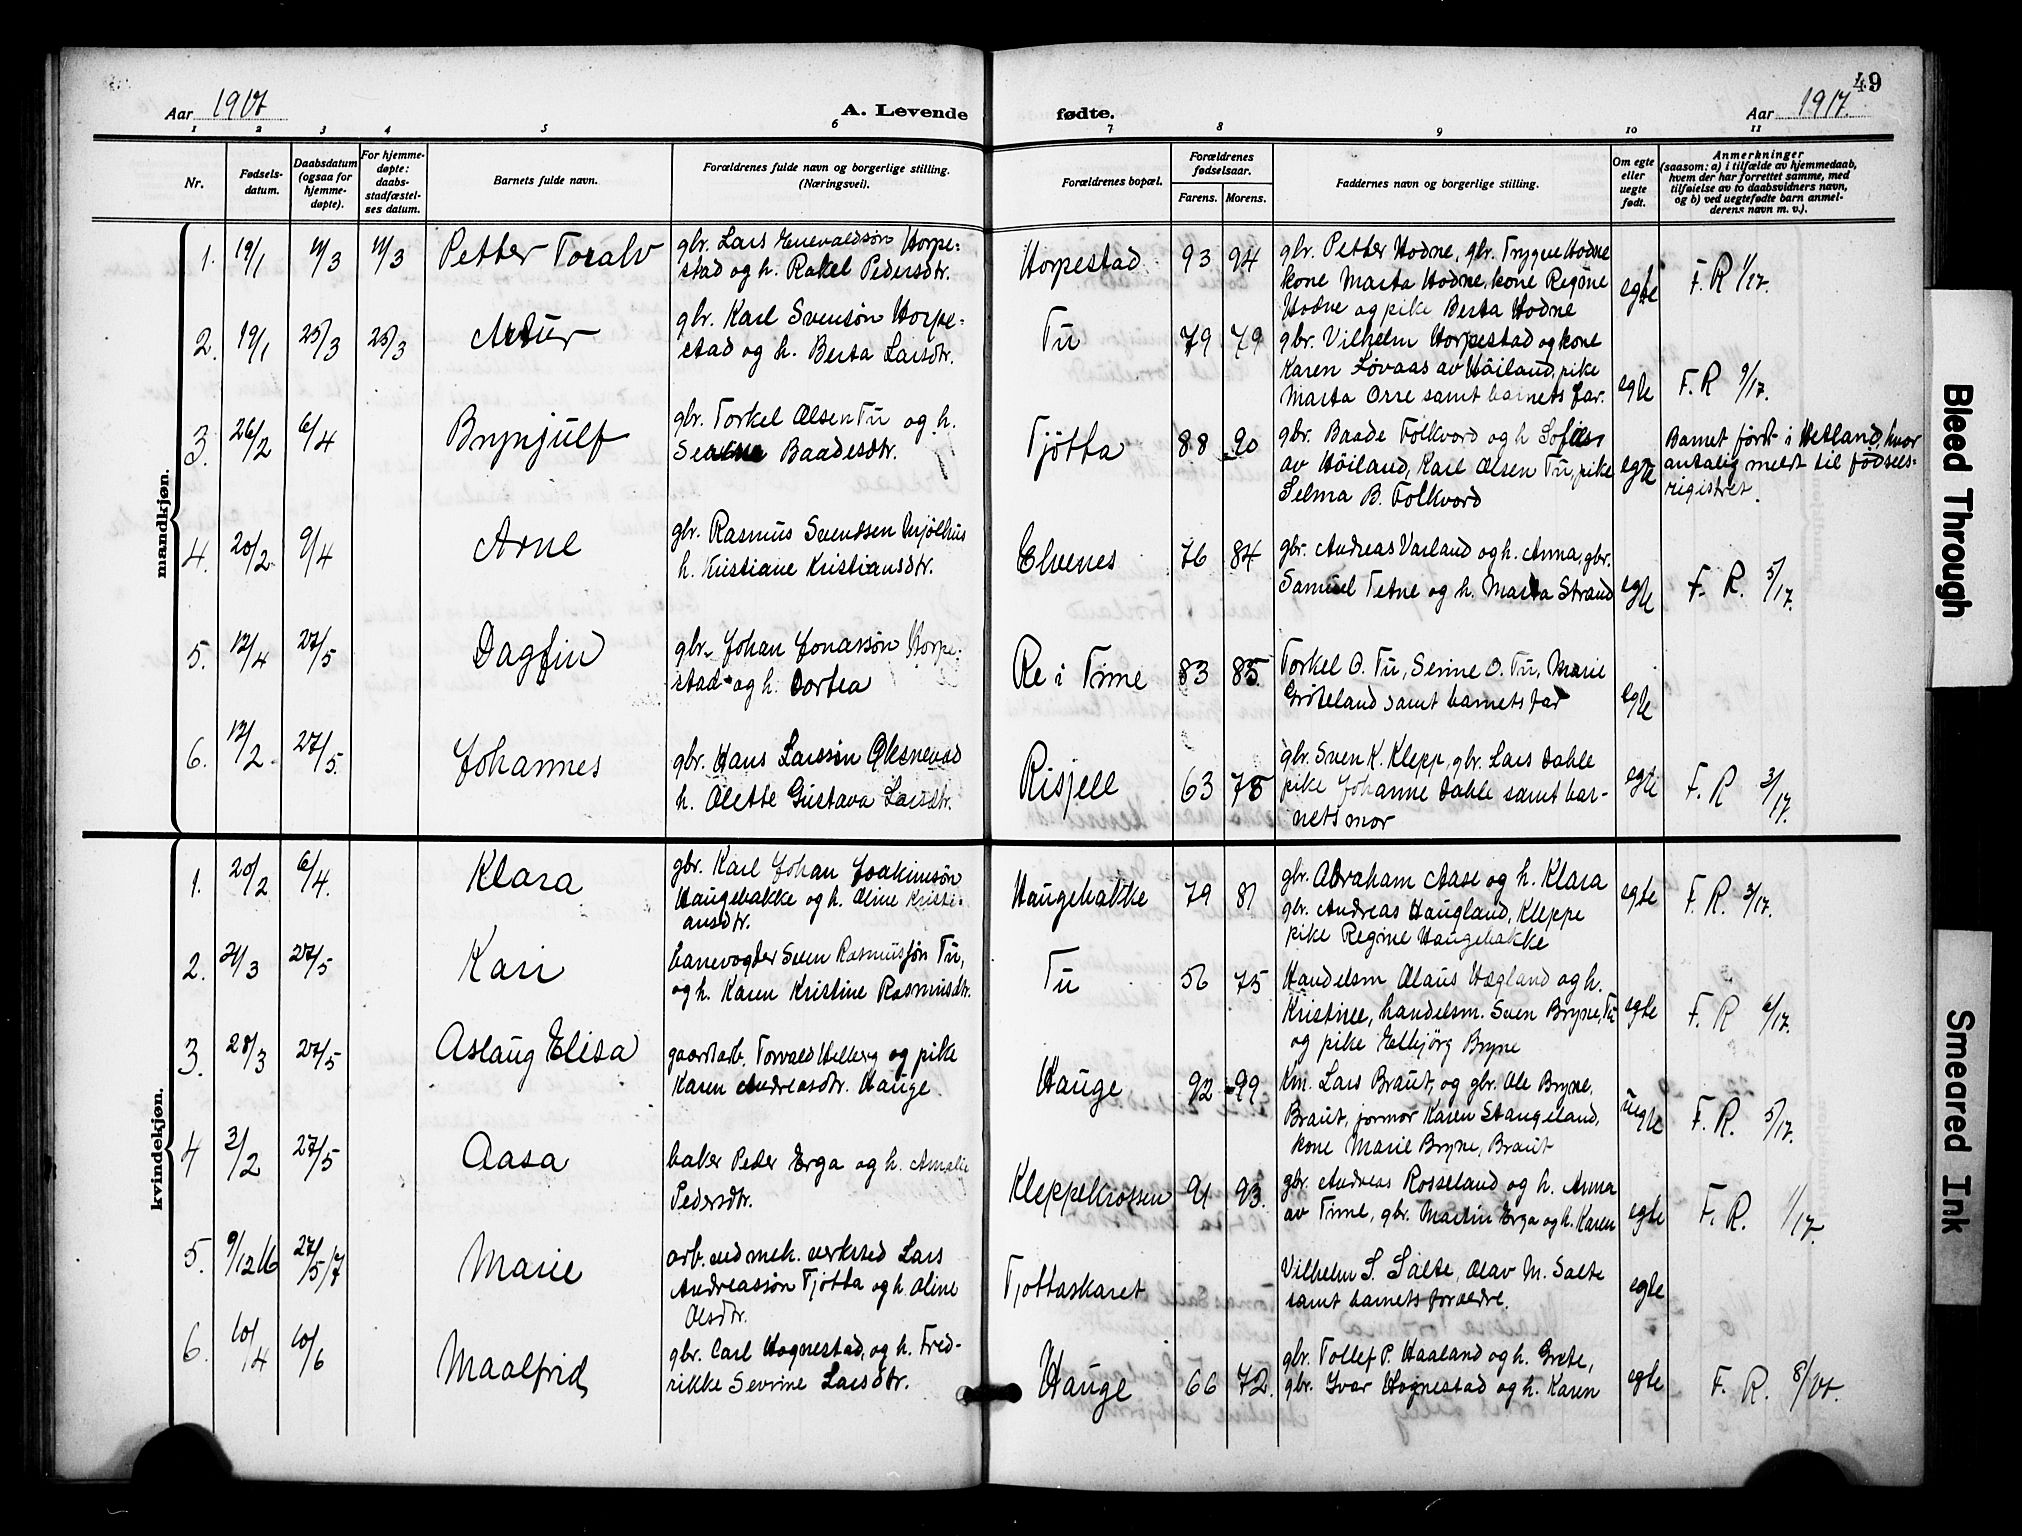 49
Aar 1917
A. Levende fødte.
Aar 1917.
1 2 3 4 5 6 7 8 9 10 11
Nr.
Fødsels-
datum.
Daabsdatum
(ogsaa for
hjemme-
døpte).
For hjemme-
døpte:
daabs-
stadfæstel-
ses datum.
Barnets fulde navn.
Forældrenes fulde navn og borgerlige stilling.
(Næringsvei).
Forældrenes bopæl.
Forældrenes
fødselsaar.
Farens. Morens.
Faddernes navn og borgerlige stilling.
Om egte
eller
uegte
født.
Anmerkninger
(saasom: a) i tilfælde av hjemmedaab,
hvem der har forrettet samme, med
tilføielse av to daabsvidners navn,
og b) ved uegtefødte barn anmel-
derens navn m. v.).
mandkjøn.
1. 19/1 11/3 11/3 Petter Toralv
gbr. Lars Enevaldsøn Horpe-
stad og h. Rakel Pedersdtr.
Horpestad 93 94
gbr. Petter Hodne, gbr. Trygve Hodne
kone Marta Hodne, kone Regine
Hodne og pike Berta Hodne
egte F. R 1/17.
2. 19/1 25/3 25/3 Artur
gbr. Karl Svensøn Horpe-
stad og h. Berta Larsdtr.
Tu 79 79
gbr. Vilhelm Horpestad og kone
Karen Løvaas av Høiland, pike
Marta Orre samt barnets far.
egte F. R 9/17.
3. 26/2 6/4 Brynjulf
gbr. Torkel Olsen Tu og h.
Baadesdtr.
Tjøtta 88 90
gbr. Baade Folkvord og h.
av Høiland, Karl Olsen Tu, pike
Selma B. Folkvord
egte
Barnet født i Hetland, hvor
antalig meldt til fødsels-
registret.
4. 20/2 9/4 Arne
gbr. Rasmus Svendsen Mjølhus
h. Kristiane Kristiansdtr.
Elvenes 76 84
gbr. Andreas Varland og h. Anna, gbr.
Samuel Tetne og h. Marta Strand
egte F. R. 5/17.
5. 12/4 27/5 Dagfin
gbr. Johan Jonassøn Horpe-
stad og h. Dortea
Re i Time 83 85.
Torkel O. Tu, Serine O. Tu, Marie
Grøteland samt barnets far
egte
6. 12/2 27/5. Johannes
gbr. Hans Larssøn Øksnevad
h. Olette Gustava Larsdtr.
Risjell 63 78
gbr. Sven K. Klepp, gbr. Lars Dahle
pike Johanne Dahle samt bar-
nets mor
egte F. R 3/17.
kvindekjøn.
1. 20/2 6/4. Klara
gbr. Karl Johan Joakimsøn
Haugebakke og h. Oline Kristi-
ansdtr.
Haugebakke 79 81
gbr. Abraham Aase og h. Klara
gbr. Andreas Haugland, Kleppe
pike Regine Haugebakke
egte F. R. 3/17.
2. 21/3 27/5 Kari
banevogter Sven Rasmussøn Tu,
og h. Karen Kristine Rasmusdtr.
Tu 56 75
Handelsm Olaus Hægland og h.
Kristine, handelsm. Sven Bryne, Tu
og pike Elbjørg Bryne
egte F. R 6/17.
3. 28/3 27/5 Aslaug Elisa
gaardarb. Torvald Helberg og pike
Karen Andreasdtr. Hauge
Hauge 92 99
Km. Lars Braut, og gbr. Ole Bryne,
Braut, jormor Karen Stangeland,
kone Marie Bryne, Braut
uegte F. R. 5/17.
4 3/2 27/5 Aasa
baker Peder Erga og h. Amalie
Pedersdtr.
Kleppekrossen 91 93.
gbr. Andreas Rosseland og h. Anna
av Time, gbr. Martin Erga og h. Karen
egte F. R. 1/17.
5. 9/12 16 27/5 17 Marie
arb. ved mek. verksted Lars
Andreassøn Tjøtta og h. Oline
Olsdtr.
Tjøttaskaret
Vilhelm S. Salte, Olav M. Salte
samt barnets forældre.
egte
6. 10/4 10/6 Maalfrid
gbr. Carl Hognestad, og h. Fred-
rikke Sevrine Larsdtr.
Hauge 66 72.
gbr. Tollef P. Haaland og h. Grete,
gbr. Ivar Hognestad og h. Karen
egte F. R. 8/17.
Bleed Through
Smeared Ink